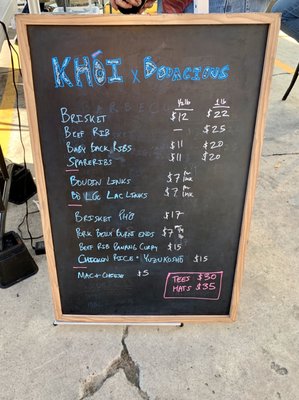 KHÓI x BODACIOUS
½ lb 1 lb
BRISKET $12 $22
BEEF RIB — $25
BABY BACK RIBS $11 $20
SPARERIBS $11 $20
BOUDIN LINKS $7 per link
BÒ LÚC LẮC LINKS $7 per link
BRISKET PHỞ $17
PORK BELLY BURNT ENDS $7
BEEF RIB PANANG CURRY $15
CHICKEN RICE + YUZU KOSHO $15
MAC + CHEESE $5
TEES $30
HATS $35